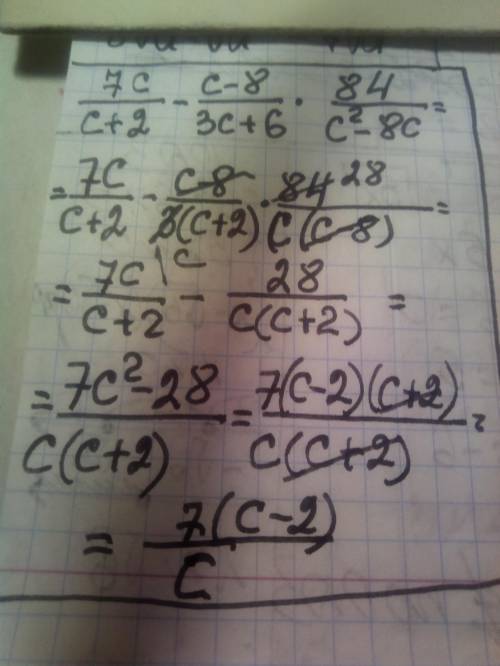 7c/(c+2) - (c-8)/(3c+6) · 84/(c²-8c) =
= 7c/(c+2) - (c-8)/(3(c+2)) · 84 28/(c(c-8)) =
= 7c\c/(c+2) - 28/(c(c+2)) =
= (7c²-28)/(c(c+2)) = 7(c-2)(c+2)/(c(c+2)) =
= 7(c-2)/c